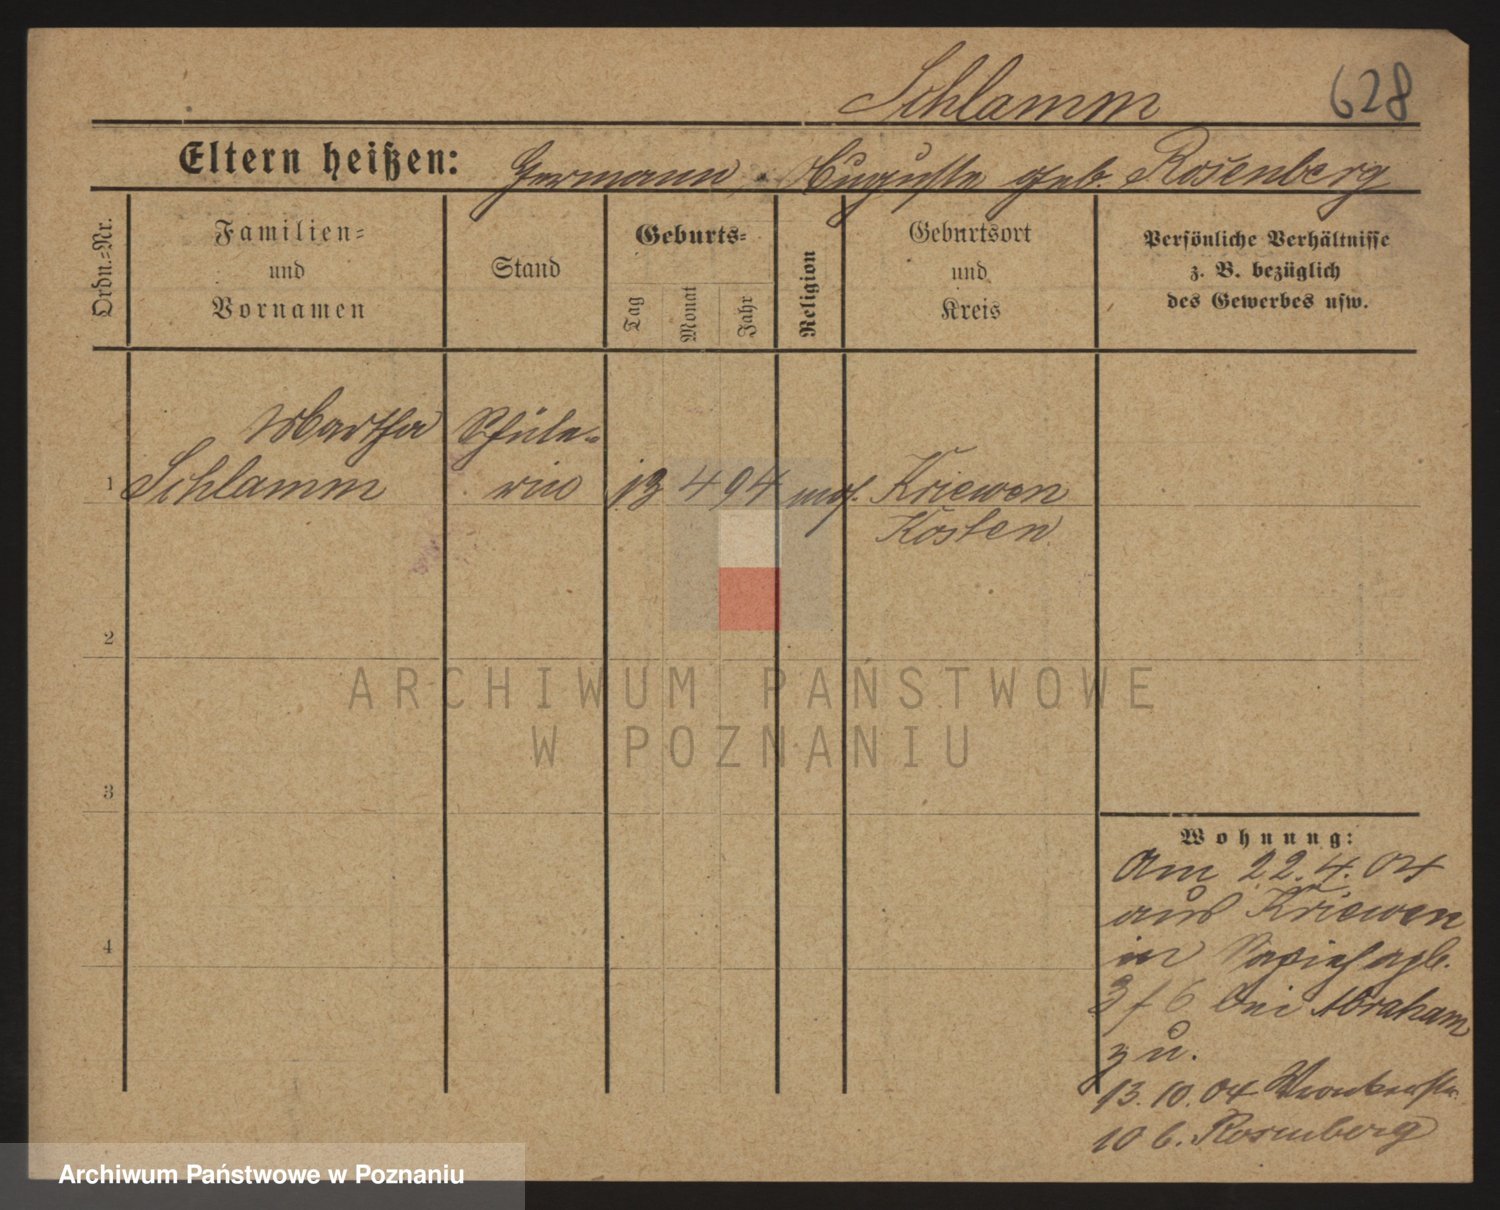 Schlamm 628
Eltern heißen: Hermann, Auguste geb. Rosenberg
Ordn.=Nr.
Familien=
und
Vornamen
Stand
Geburts=
Tag
Monat
Jahr
Religion
Geburtsort
und
Kreis
Persönliche Verhältnisse
z. B. bezüglich
des Gewerbes usw.
Martha Schüle=
1 Schlamm rin 13 4 94 mos. Kriewen
Kosten
2
ARCHIWUM PAŃSTWOWE
W POZNANIU
3
4
Wohnung:
Am 22.4.04
aus Kriewen
in
3/6 bei Abraham
zu.
13.10.04 Wronkerstr.
10 b. Rosenberg
Archiwum Państwowe w Poznaniu